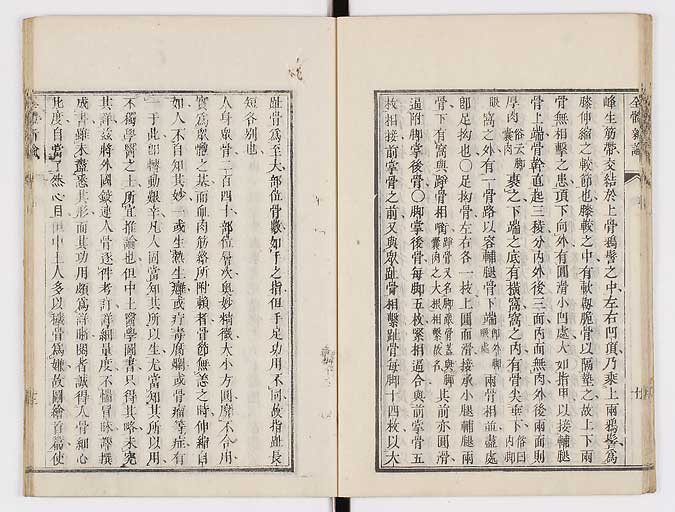 峰生筋帶、交結於上骨鴉髻之中、左右凹頂、乃乘上兩鴉髻為
膝伸縮之較節也、膝較之中、有軟韌脆骨以隔墊之、故上下兩
骨無相擊之患、頂下向外、有圓滑小凹處、大如指甲、以接輔腿
骨上端、骨幹直起三稜、分內外後三面、內面無肉、外後兩面、則
厚肉俗云脚囊肉裹之、下端之底有橫窩、窩之內有骨尖垂下、俗曰內脚
眼窩之外、有一骨路以容輔腿骨下端、即外脚眼處兩骨相並、盡處
即足拗也〇足拗骨、左右各一枝、上圓而滑、接承小腿輔腿兩
骨下有窩、與踭骨相踭骨又名脚跟骨蓋與脚囊肉之大根相繫故名其前亦圓滑
逼附脚掌後骨〇脚掌後骨每脚五枚、緊相逼合、與前掌骨五
枚相接、前掌骨之前、又與眾趾骨相繫、趾骨每脚十四枚、以大
趾骨為至大、部位骨數如手之指、但手足功用不同、故指趾長
短各別也
人身眾骨二百四十部位、層次奧妙精微、大小方圓、靡不合用、
實為眾體之基、而血肉筋絡所附賴者、骨節無恙之時、伸縮自
如、人不自知其妙、一或生熱生癰、或疔毒腐爛、或骨瘤等症、有
一于此、即轉動艱辛、凡人固當知其所以生、尤當知其所以用、
不獨學醫之士所宜推論也、但中土醫學圖書、只得其略、未究
其詳、茲將外國鍛連人骨、逐件考訂、詳細量度、不憚冒昧、譯撰
成書、雖未盡悉其形、而其功用頗為詳賅、閱者誠得人骨、細心
比度、自當了然心目、但中土人多以穢骨為嫌、故圖繪首篇、使